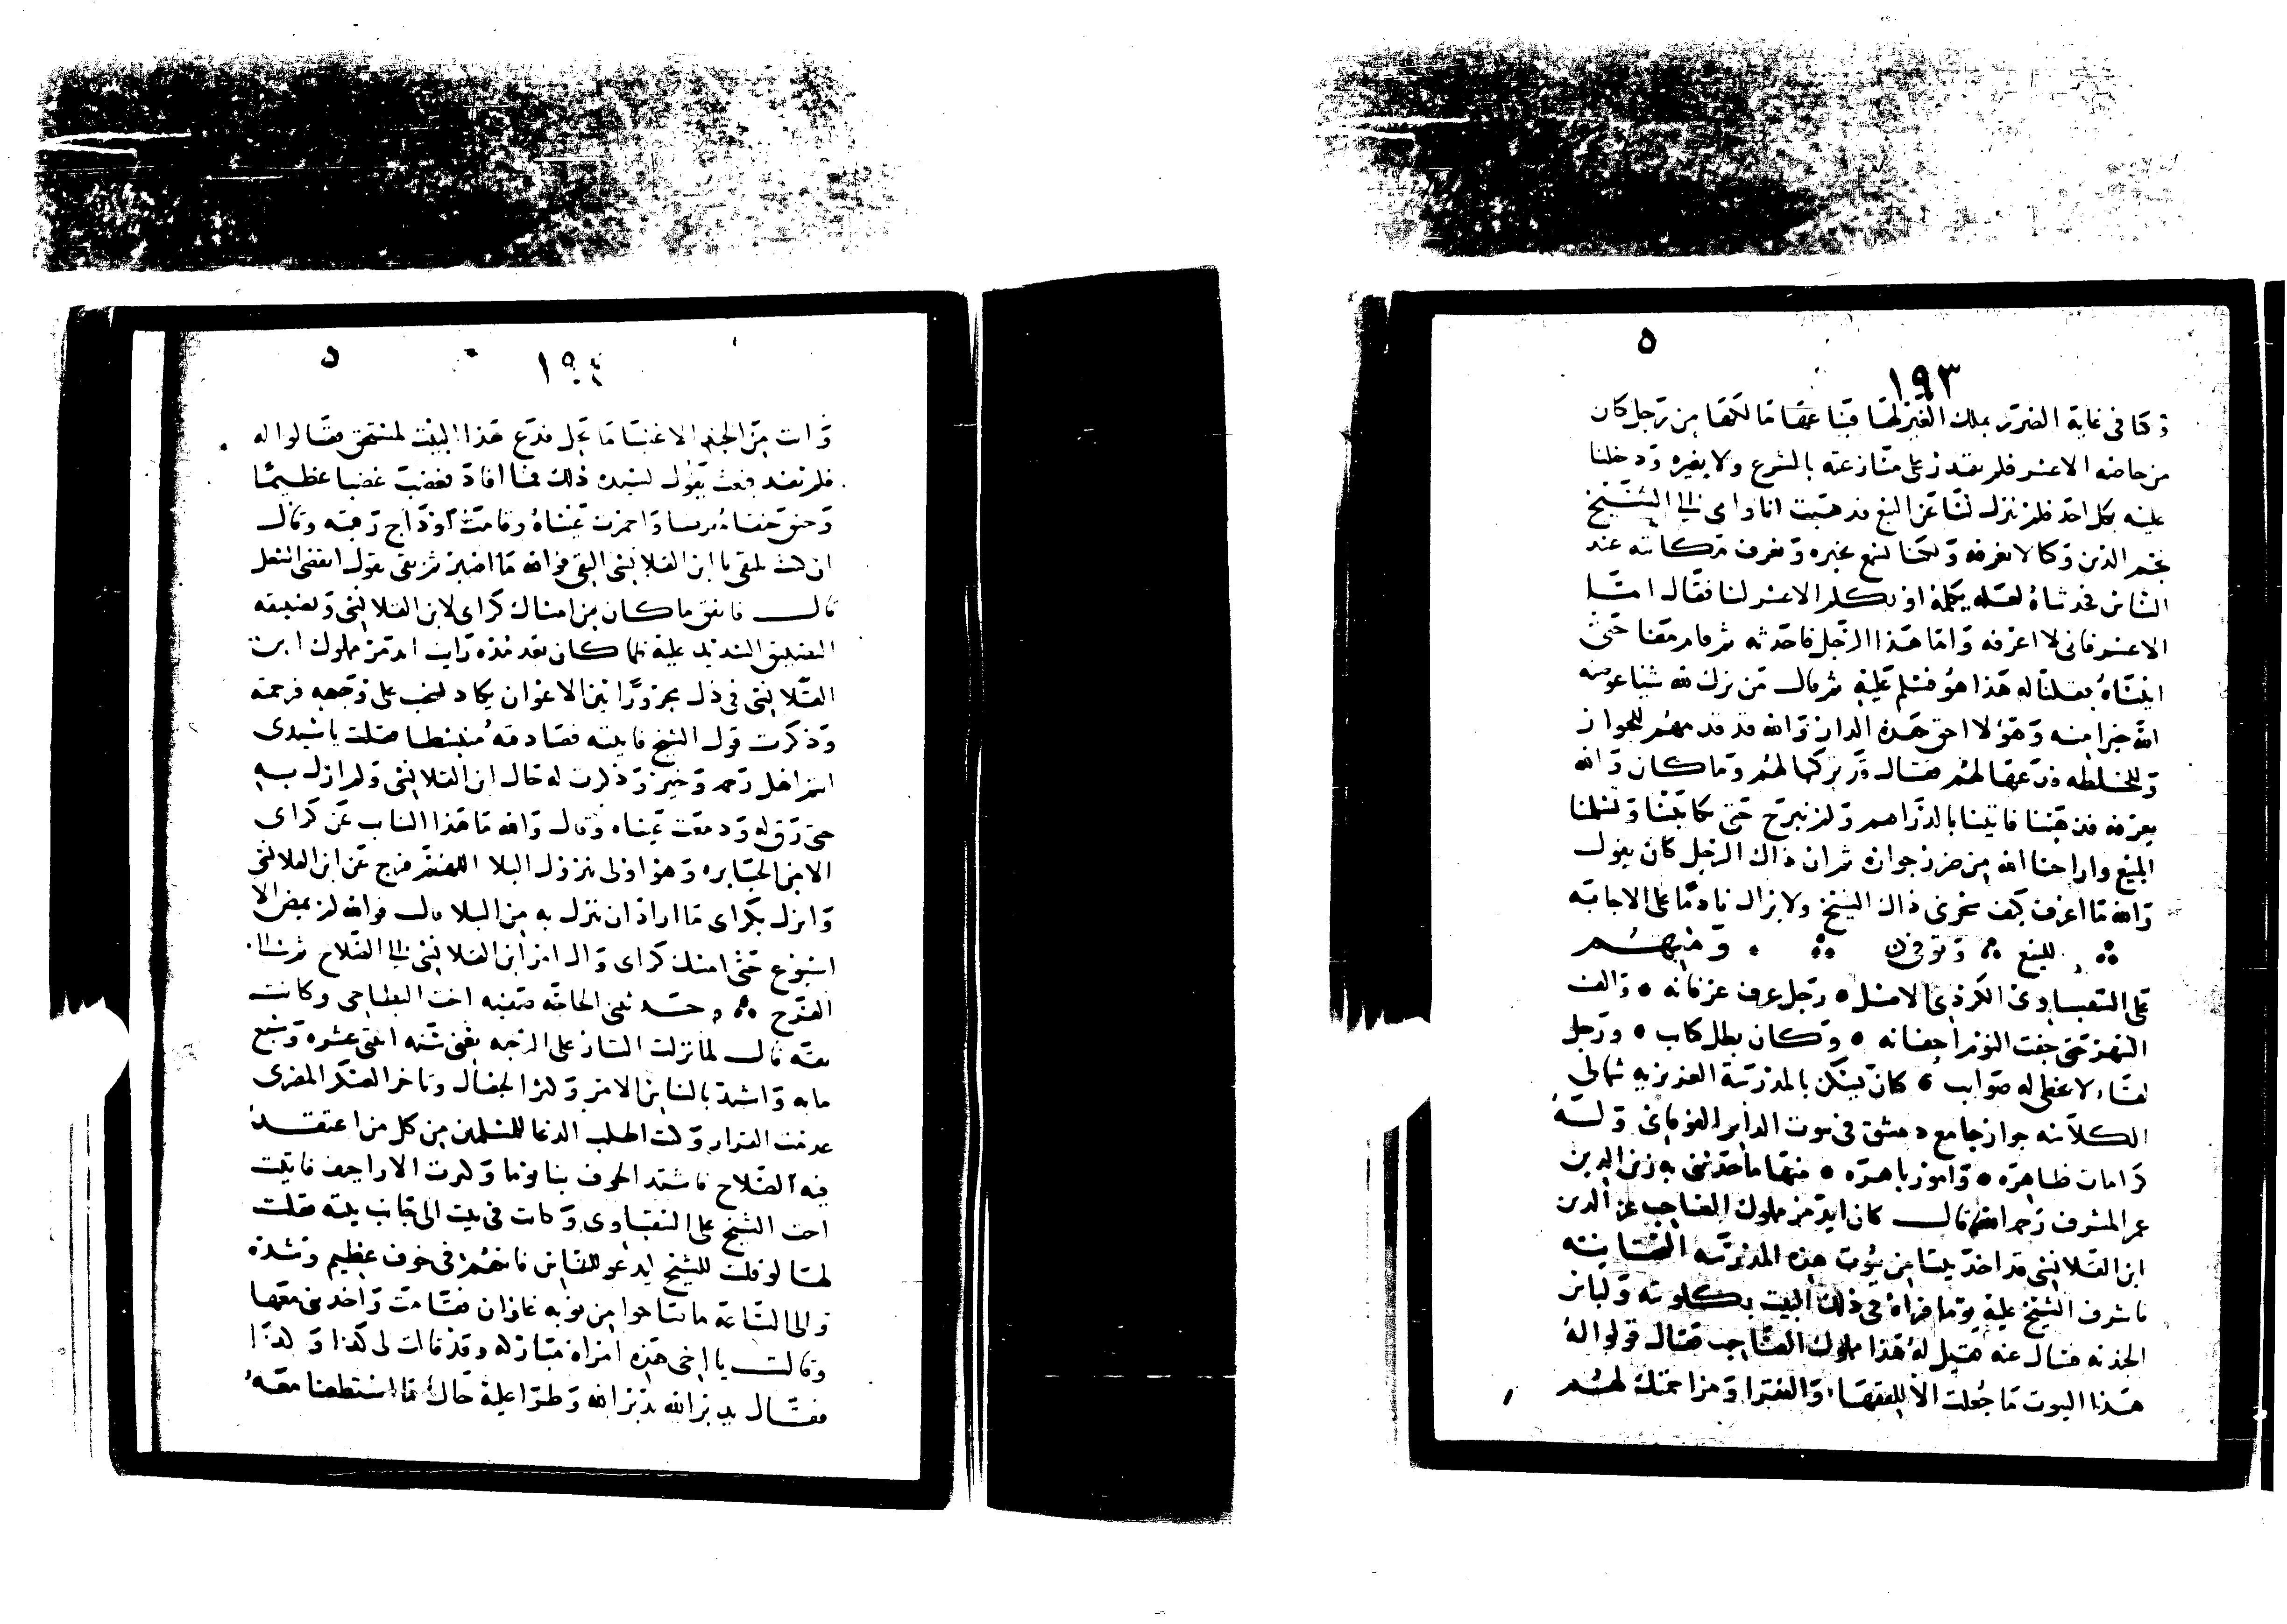 ٥
١٩٣
وكنا في غاية الضرر بملك الغير لها فبنا عمها مالكها من رجل كان
من حاضنه الاعسر فلم نقدر على منازعته بالشرع ولا بغيره ودخلنا
عليه بكل احد فلم ينزل لنا عن البيع فذهبت انا وامي الى الشيخ
نجم الدين وكنا لا نعرفه ولكنا نسمع بخبره ونعرف مكانته عند
الناس فحدثناه لعله يكلمه او يكلم الاعسر لنا فقال اما
الاعسر فاني لا اعرفه واما هذا الرجل فاحدثه ثم قام معنا حتى
اتيناه فقلنا له هذا هو فسلم عليه ثم قال من ترك لله شيا عوضه
الله خيرا منه وهؤلا احق بهذه الدار والله قد قدمهم للجوار
وللخلطه فدعها لهم فقال قد تركتها لهم وما كان والله
يعرفه فذهبنا فاتينا بالدراهم ولم نبرح حتى كاتبنا وتسلمنا
المبيع واراحنا الله من ضرر جواره ثم ان ذاك الرجل كان يقول
والله ما اعرف كيف سخرني ذاك الشيخ ولا يزال نادما على الاجابة
للبيع وتوفي ومنهم
علي الكردي الاصل رجل عرف عرفانه والف
السهر حتى جفت النوم اجفانه وكان بطل كتاب ورجل
لقاء لا يخطي له صواب كان يسكن بالمدرسة العزيزيه شمالي
الكلاسه جوار جامع دمشق في بيوت الداير الفوقاني وله
كرامات ظاهره وامور باهره منها ما حدثني به زين الدين
عمر المشرف رحمه الله قال كان ايدمر مملوك الصاحب عز الدين
ابن القلانسي قد اخذ بيتا من بيوت هذه المدرسه
فاشرف الشيخ عليه يوما فراه في ذلك البيت بكلوته ولباس
الجنديه فسال عنه فقيل له هذا مملوك الصاحب فقال قولوا له
هذا البيوت ما جعلت الا للفقهاء والفقرا ومزاحمتك لهم
٥
١٩٤
وانت من الجند الاغنيا ما تحل فدع هذا البيت لمستحق فقالوا له
فلم يفد فبعث يقول لسيده ذلك فما افاد فغضب غضبا عظيما
وحنق واحمرت عيناه وقامت اوداج رقبته وقال
ان كنت تلتقي يا ابن القلانسي التقي فوالله ما اصبر ثم بقي يقول انقضى الشغل
قال فاتفق ما كان من امساك كراي لابن القلانسي وتضييقه
التضييق الشديد عليه فلما كان بعد مده رايت ايدمر مملوك ابن
القلانسي في ذل يجر ورا بين الاعوان يكاد يسحب على وجهه فرحمته
وذكرت قول الشيخ فاتيته فصادفته منبسطا فقلت يا سيدي
انتم اهل رحمه وخير وذكرت له حال ابن القلانسي ولم ازل به
حتى رق له ودمعت عيناه وقال والله ما هذا الناب عن كراي
الا من الجبابره وهو اولى بنزول البلا اللهم فرج عن ابن القلانسي
وانزل بكراي ما اراد ان ينزل به من البلا قال فوالله لم يمض الا
اسبوع حتى امسك كراي وال امر ابن القلانسي الى الفلاح ثم الى
الفرح وحدثتني الحاجه اخت البطايحي وكانت
ثقه قالت لما نزلت التتار على الرحبه يعني سنه اثني عشره وسبع
مايه واشتد بالناس الامر وكثر الجفال وتاخر العسكر المصري
عدمت القرار وكنت اطلب الدعا للمسلمين من كل من اعتقد
فيه الصلاح فاشتد الخوف بنا يوما وكثرت الاراجيف فاتيت
اخت الشيخ علي وكانت في بيت الى جانب بيته فقلت
لها لو قلت للشيخ ليدعو للناس فانهم في خوف عظيم وشده
والى الساعه ما استراحوا من نوبه غازان فقامت واخذتني معها
وقالت يا اخي هذه امراه مباركه وقد قالت لي كذا وكذا
فقال يدبر الله يدبر الله وطرا عليه حال ما استطعنا معه